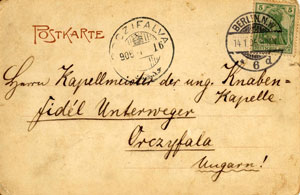 POSTKARTE
CZIFALVA
905
16
BERLIN, N.W.
14.1.
6 d
5
Herrn Kapellmeister der ung. Knaben-
Kapelle.
Fidél Unterweger
Orczyfala
Ungarn!